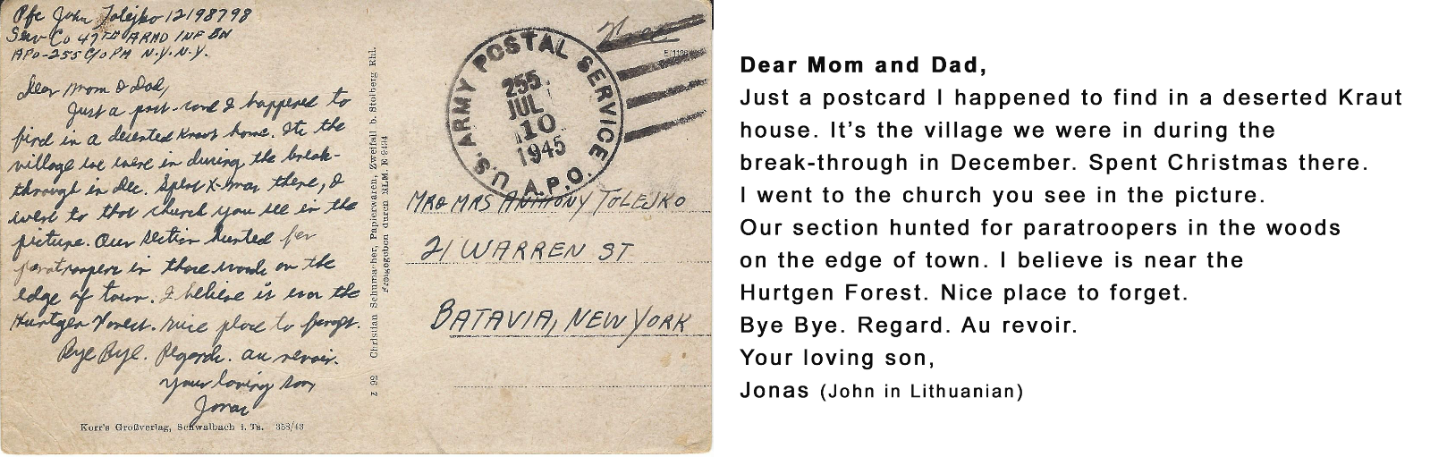 Pfc John Tolejko 12198798
Serv Co 47TH ARMD INF BN
APO-255 C/O PM N.Y. N.Y.
Dear Mom & Dad,
Just a post-card I happened to
find in a deserted Kraut home. Its the
village we were in during the break-
through in Dec. Spent X-mas there, I
went to that church you see in the
picture. Our section hunted for
paratroopers in those woods on the
edge of town. I believe is near the
Hurtgen Forest. Nice place to forget.
Bye Bye. Regards. Au revoir.
Your loving son
Jonas
Korr's Großverlag, Schwalbach i. Ts. 358/43
Z 92 Christian Schumacher, Papierwaren, Zweifall b. Stolberg Rhl.
Freigegeben durch RLM.
U.S. ARMY POSTAL SERVICE
A.P.O.
255
JUL
10
1945
Free
MR & MRS ANTHONY TOLEJKO
21 WARREN ST
BATAVIA, NEW YORK
Dear Mom and Dad,
Just a postcard I happened to find in a deserted Kraut
house. It's the village we were in during the
break-through in December. Spent Christmas there.
I went to the church you see in the picture.
Our section hunted for paratroopers in the woods
on the edge of town. I believe is near the
Hurtgen Forest. Nice place to forget.
Bye Bye. Regard. Au revoir.
Your loving son,
Jonas (John in Lithuanian)